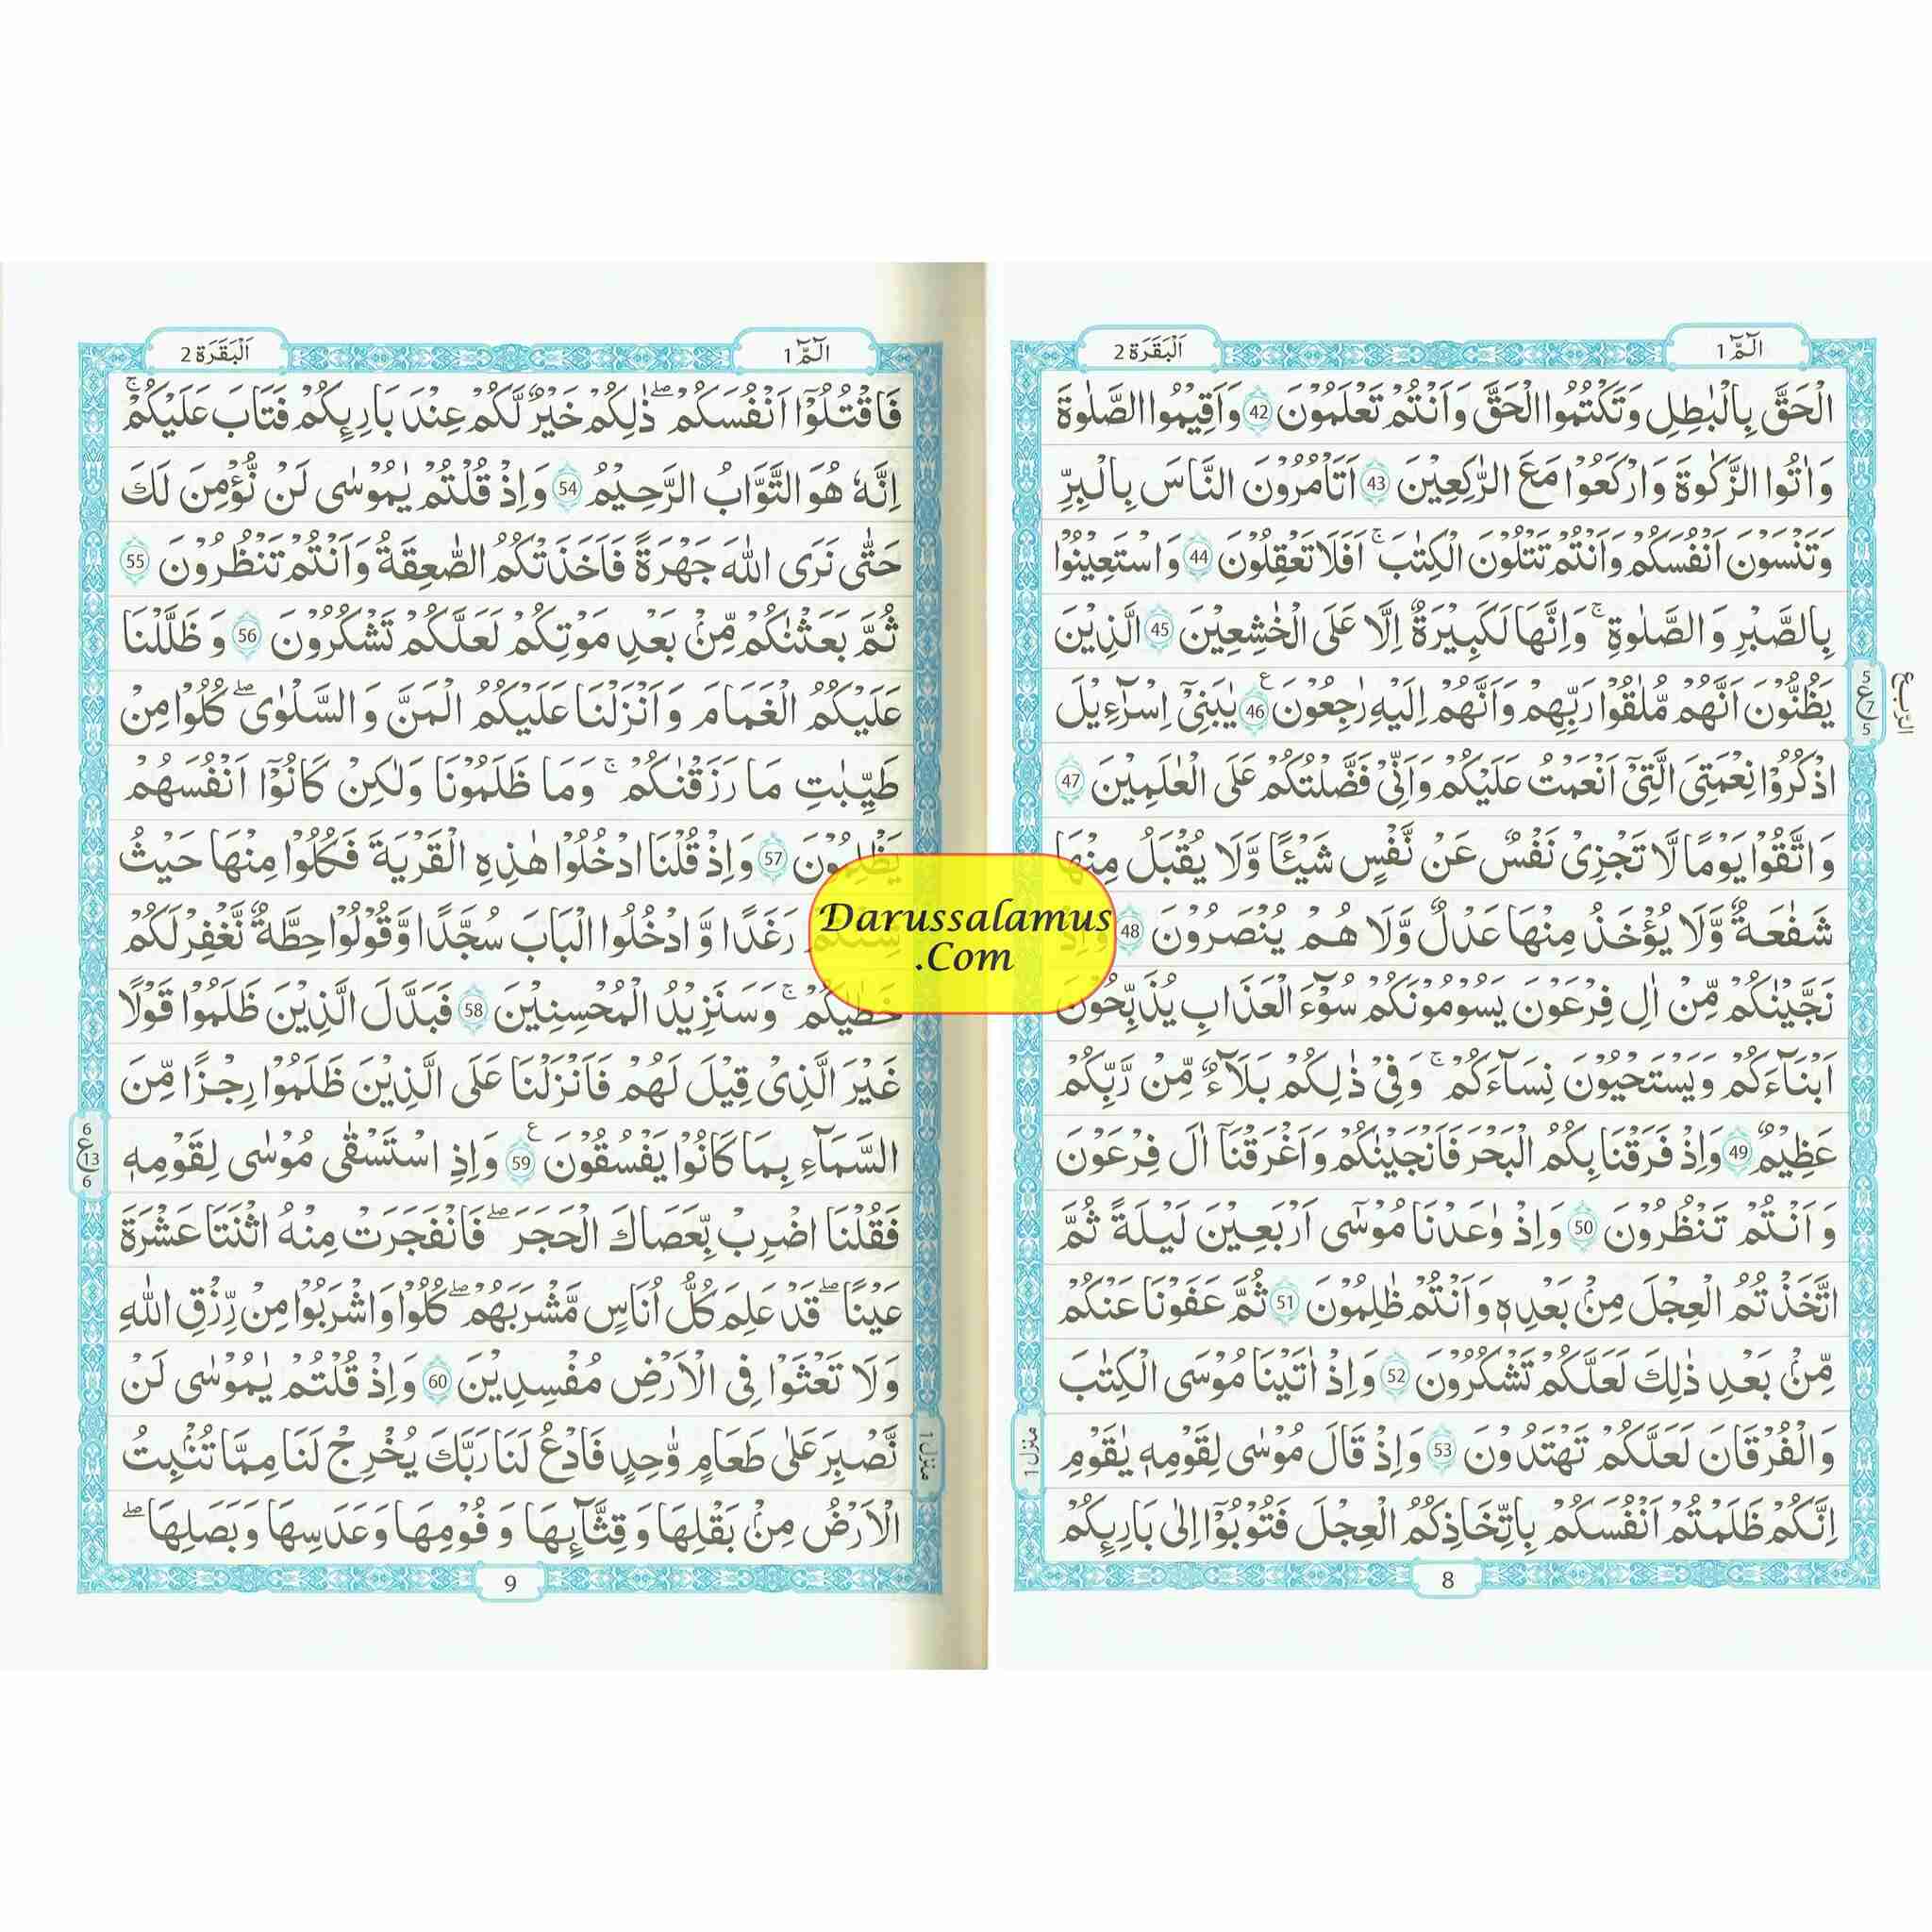 الٓمّٓ 1
اَلْبَقَرَة 2
الْحَقَّ بِالْبٰطِلِ وَتَكْتُمُوا الْحَقَّ وَاَنْتُمْ تَعْلَمُوْنَ 42 وَاَقِيْمُوا الصَّلٰوةَ
وَاٰتُوا الزَّكٰوةَ وَارْكَعُوْا مَعَ الرّٰكِعِيْنَ 43 اَتَاْمُرُوْنَ النَّاسَ بِالْبِرِّ
وَتَنْسَوْنَ اَنْفُسَكُمْ وَاَنْتُمْ تَتْلُوْنَ الْكِتٰبَ ۚ اَفَلَا تَعْقِلُوْنَ 44 وَاسْتَعِيْنُوْا
بِالصَّبْرِ وَالصَّلٰوةِ ۚ وَاِنَّهَا لَكَبِيْرَةٌ اِلَّا عَلَى الْخٰشِعِيْنَ 45 الَّذِيْنَ
يَظُنُّوْنَ اَنَّهُمْ مُّلٰقُوْا رَبِّهِمْ وَاَنَّهُمْ اِلَيْهِ رٰجِعُوْنَ 46 يٰبَنِيْٓ اِسْرَآءِيْلَ
اذْكُرُوْا نِعْمَتِيَ الَّتِيْٓ اَنْعَمْتُ عَلَيْكُمْ وَاَنِّيْ فَضَّلْتُكُمْ عَلَى الْعٰلَمِيْنَ 47
وَاتَّقُوْا يَوْمًا لَّا تَجْزِيْ نَفْسٌ عَنْ نَّفْسٍ شَيْـًٔا وَّلَا يُقْبَلُ مِنْهَا
شَفٰعَةٌ وَّلَا يُؤْخَذُ مِنْهَا عَدْلٌ وَّلَا هُمْ يُنْصَرُوْنَ 48 وَاِذْ
نَجَّيْنٰكُمْ مِّنْ اٰلِ فِرْعَوْنَ يَسُوْمُوْنَكُمْ سُوْٓءَ الْعَذَابِ يُذَبِّحُوْنَ
اَبْنَآءَكُمْ وَيَسْتَحْيُوْنَ نِسَآءَكُمْ ۚ وَفِيْ ذٰلِكُمْ بَلَآءٌ مِّنْ رَّبِّكُمْ
عَظِيْمٌ 49 وَاِذْ فَرَقْنَا بِكُمُ الْبَحْرَ فَاَنْجَيْنٰكُمْ وَاَغْرَقْنَآ اٰلَ فِرْعَوْنَ
وَاَنْتُمْ تَنْظُرُوْنَ 50 وَاِذْ وٰعَدْنَا مُوْسٰٓى اَرْبَعِيْنَ لَيْلَةً ثُمَّ
اتَّخَذْتُمُ الْعِجْلَ مِنْۢ بَعْدِهٖ وَاَنْتُمْ ظٰلِمُوْنَ 51 ثُمَّ عَفَوْنَا عَنْكُمْ
مِّنْۢ بَعْدِ ذٰلِكَ لَعَلَّكُمْ تَشْكُرُوْنَ 52 وَاِذْ اٰتَيْنَا مُوْسَى الْكِتٰبَ
وَالْفُرْقَانَ لَعَلَّكُمْ تَهْتَدُوْنَ 53 وَاِذْ قَالَ مُوْسٰى لِقَوْمِهٖ يٰقَوْمِ
اِنَّكُمْ ظَلَمْتُمْ اَنْفُسَكُمْ بِاتِّخَاذِكُمُ الْعِجْلَ فَتُوْبُوْٓا اِلٰى بَارِىِٕكُمْ
5
ع
7
5
الرّبع
منزل 1
8
الٓمّٓ 1
اَلْبَقَرَة 2
فَاقْتُلُوْٓا اَنْفُسَكُمْ ۖ ذٰلِكُمْ خَيْرٌ لَّكُمْ عِنْدَ بَارِىِٕكُمْ فَتَابَ عَلَيْكُمْ ۚ
اِنَّهٗ هُوَ التَّوَّابُ الرَّحِيْمُ 54 وَاِذْ قُلْتُمْ يٰمُوْسٰى لَنْ نُّؤْمِنَ لَكَ
حَتّٰى نَرَى اللّٰهَ جَهْرَةً فَاَخَذَتْكُمُ الصّٰعِقَةُ وَاَنْتُمْ تَنْظُرُوْنَ 55
ثُمَّ بَعَثْنٰكُمْ مِّنْۢ بَعْدِ مَوْتِكُمْ لَعَلَّكُمْ تَشْكُرُوْنَ 56 وَظَلَّلْنَا
عَلَيْكُمُ الْغَمَامَ وَاَنْزَلْنَا عَلَيْكُمُ الْمَنَّ وَالسَّلْوٰى ۖ كُلُوْا مِنْ
طَيِّبٰتِ مَا رَزَقْنٰكُمْ ۚ وَمَا ظَلَمُوْنَا وَلٰكِنْ كَانُوْٓا اَنْفُسَهُمْ
يَظْلِمُوْنَ 57 وَاِذْ قُلْنَا ادْخُلُوْا هٰذِهِ الْقَرْيَةَ فَكُلُوْا مِنْهَا حَيْثُ
شِئْتُمْ رَغَدًا وَّادْخُلُوا الْبَابَ سُجَّدًا وَّقُوْلُوْا حِطَّةٌ نَّغْفِرْ لَكُمْ
خَطٰيٰكُمْ ۚ وَسَنَزِيْدُ الْمُحْسِنِيْنَ 58 فَبَدَّلَ الَّذِيْنَ ظَلَمُوْا قَوْلًا
غَيْرَ الَّذِيْ قِيْلَ لَهُمْ فَاَنْزَلْنَا عَلَى الَّذِيْنَ ظَلَمُوْا رِجْزًا مِّنَ
السَّمَآءِ بِمَا كَانُوْا يَفْسُقُوْنَ 59 وَاِذِ اسْتَسْقٰى مُوْسٰى لِقَوْمِهٖ
فَقُلْنَا اضْرِبْ بِّعَصَاكَ الْحَجَرَ ۖ فَانْفَجَرَتْ مِنْهُ اثْنَتَا عَشْرَةَ
عَيْنًا ۖ قَدْ عَلِمَ كُلُّ اُنَاسٍ مَّشْرَبَهُمْ ۖ كُلُوْا وَاشْرَبُوْا مِنْ رِّزْقِ اللّٰهِ
وَلَا تَعْثَوْا فِى الْاَرْضِ مُفْسِدِيْنَ 60 وَاِذْ قُلْتُمْ يٰمُوْسٰى لَنْ
نَّصْبِرَ عَلٰى طَعَامٍ وَّاحِدٍ فَادْعُ لَنَا رَبَّكَ يُخْرِجْ لَنَا مِمَّا تُنْۢبِتُ
الْاَرْضُ مِنْۢ بَقْلِهَا وَقِثَّآىِٕهَا وَفُوْمِهَا وَعَدَسِهَا وَبَصَلِهَا ۖ
6
ع
13
6
منزل 1
9
Darussalamus
.Com